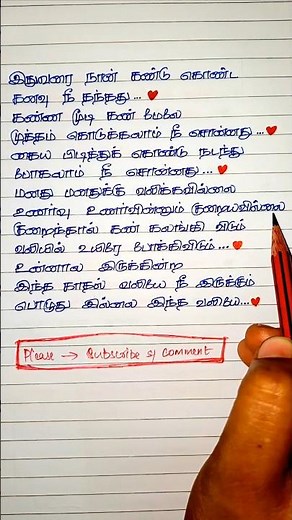 இதுவரை நான் கண்டு கொண்ட
கனவு நீ தந்தது... ♥
கண்ண மூடி கண் மேலே
முத்தம் கொடுக்கலாம் நீ சொன்னது... ♥
கைய பிடித்துக் கொண்டு நடந்து
போகலாம் நீ சொன்னது... ♥
மனது மனதுக்கு வலிக்கவில்லை
உணர்வு உணர்வின்னும் குறையவில்லை
குறைந்தால் கண் கலங்கி விடும்
வலியில் உயிரே போக்கிவிடும்... ♥
உன்னால இருக்கின்ற
இந்த காதல் வலியே நீ இருக்கும்
பொழுது இல்லை இந்த வலியே... ♥
Please → Subscribe & comment